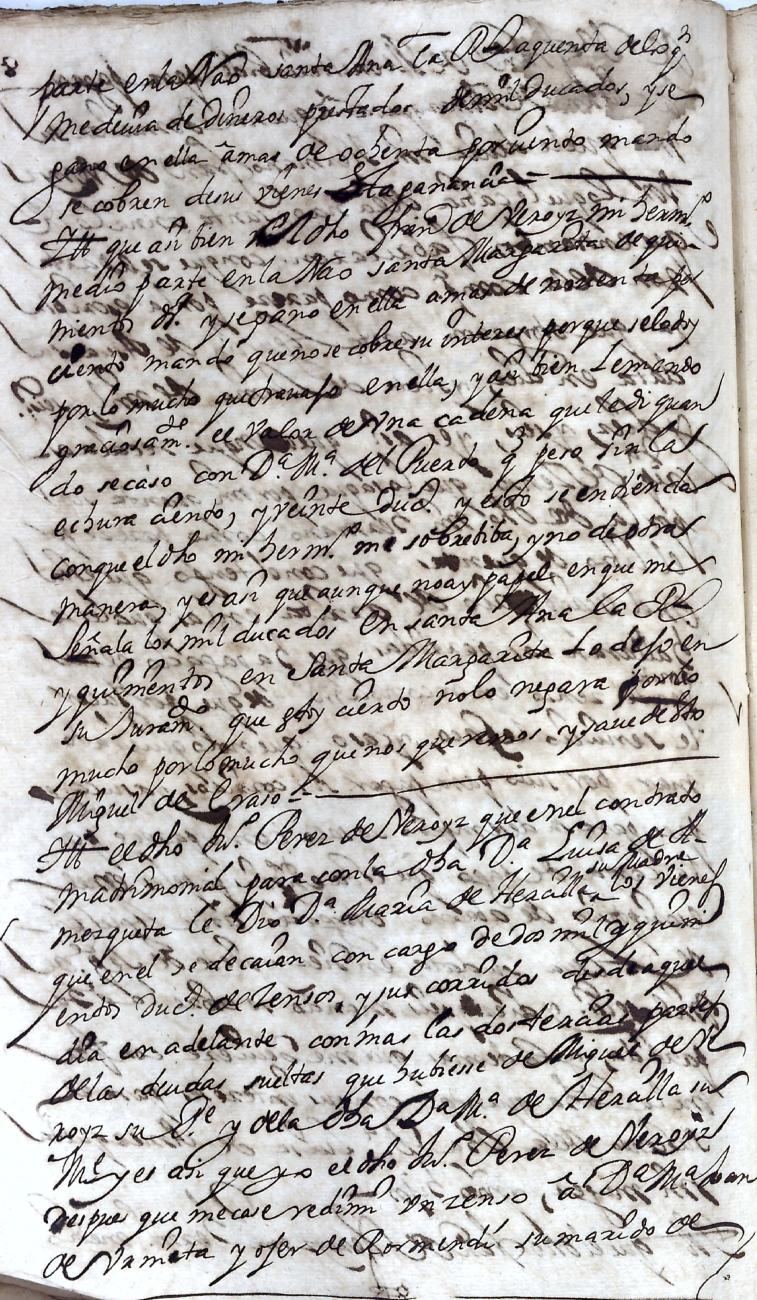 parte en la Nao santa Ana La Rl aquenta de los qn
me devia de dineros prestados de mil ducados, y se
gano en ella amas de ochenta por ciento mando
se cobren de sus vienes Esta ganancia
Itt que asi bien el dho fran.co de Veroyz mi herm.o
medio parte en la Nao santa Margarita de qui-
nientos ds. y se gano en ella amas de noventa por
ciento mando que no se cobre su interes porque se lo doy
por lo mucho que travajo en ella, y asi bien Le mando
graciosam.te el valor de Una cadena que le di quan
do se caso con D.a M.a del Puerto q peso sin las
echura ciento, y veinte duc.s y esto se entienda
con que el dho mi herm.o me sobreviba, y no de otra
manera, y es asi que aunque no ay papel en que me
señala los mil ducados en santa Ana la Rl
y quinientos en Santa Margarita Lo dejo en
su Juram.to que estoy cierto no lo negara por lo
mucho por lo mucho que nos queremos y save de esto
Miguel de Eraso
Itt el dho Ju.o Perez de Veroyz que en el contrato
matrimonial para con la dha D.a Luisa de A-
mezqueta le Dio D.a Maria de Heralla su Madre los vienes
que en el se decaian con cargo de dos mil y quini
entos duc.s de zensos, y sus corridos desde aquel
dia en adelante con mas las dos tercias partes
de las deudas sueltas que hubiese de Miguel de Ve
royz su P.e y de la dha D.a M.a de Heralla su
M.e y es asi que yo el dho Ju.o Perez de Veroyz
despues que me case redimi un zenso, a D.a M.a Joan
de Urnieta y oJer de Rormendi su marido de